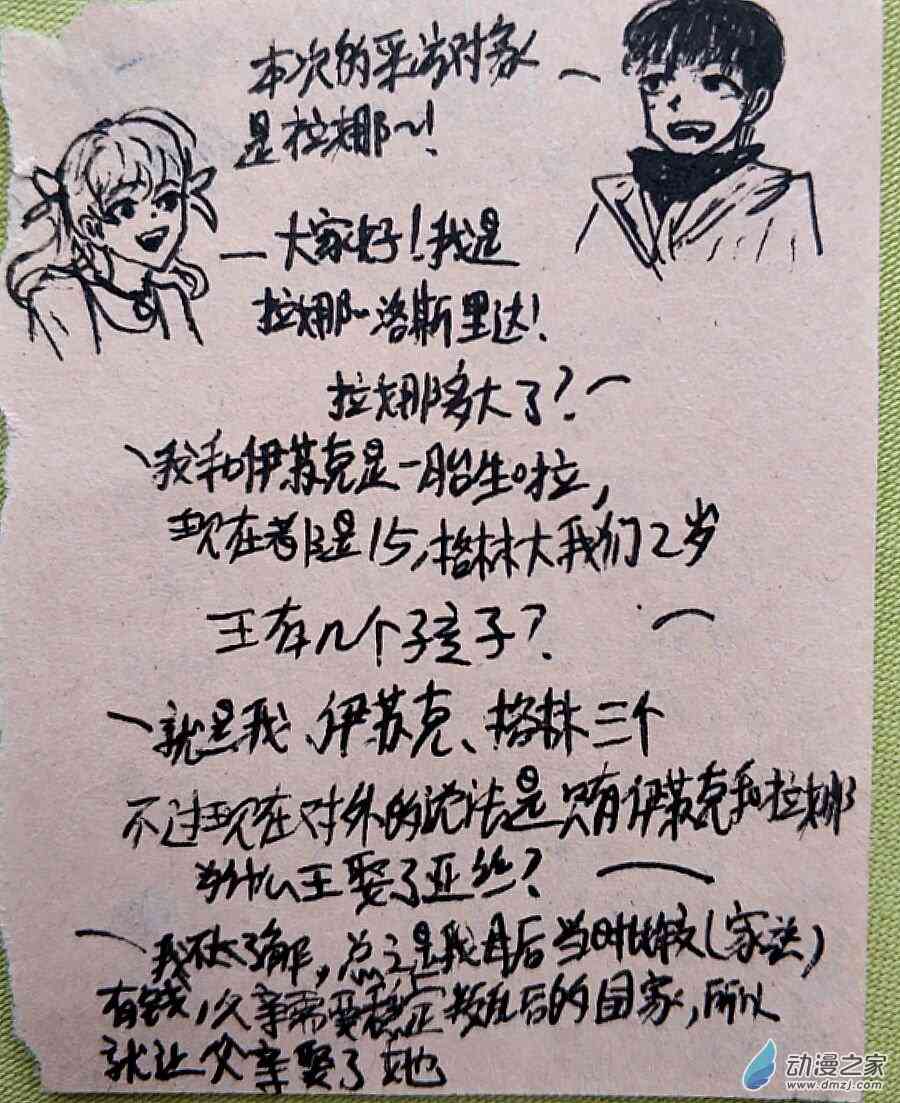 本次的采访对象
是拉娜~!
大家好!我是
拉娜~洛斯里达!
拉娜多大了?
我和伊苏克是一胎生哒,
现在都是15,格林大我们2岁
王有几个孩子?
就是我、伊苏克、格林三个
不过现在对外的说法是只有伊苏克和拉娜
为什么王娶了亚丝?
我不太了解,总之是我母后当时比较(家族)
有钱,父亲需要稳定战乱后的国家,所以
就让父亲娶了她
动漫之家
www.dmzj.com